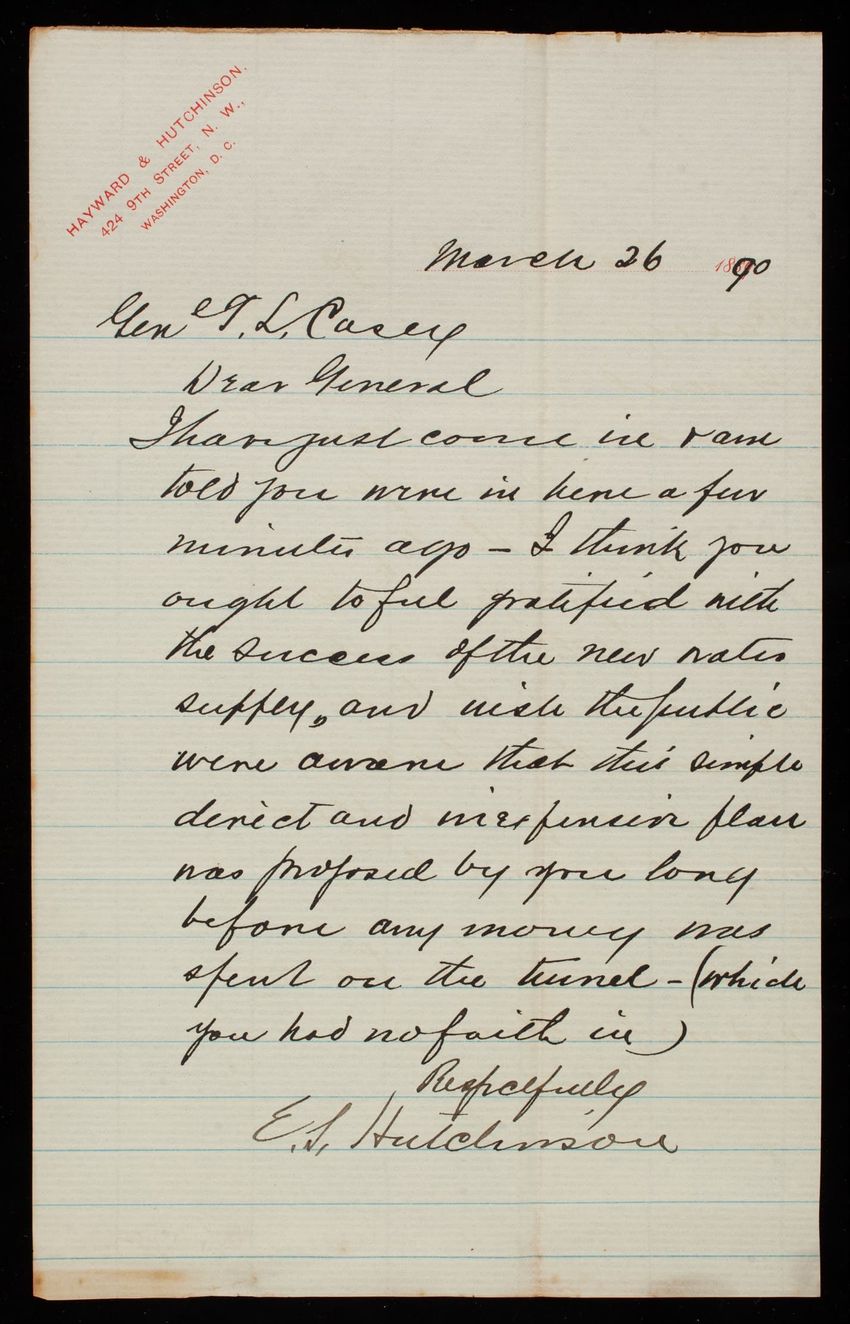 HAYWARD & HUTCHINSON.
424 9TH STREET, N. W.,
WASHINGTON, D. C.
March 26 1890
Genl T. L. Casey
Dear General
I have just come in & am
told you were in here a few
minutes ago - I think you
ought to feel gratified with
the success of the new water
supply, and wish the public
were aware that this simple
direct and inexpensive plan
was proposed by you long
before any money was
spent on the tunnel - (which
you had no faith in)
Respectfully
E. S. Hutchinson